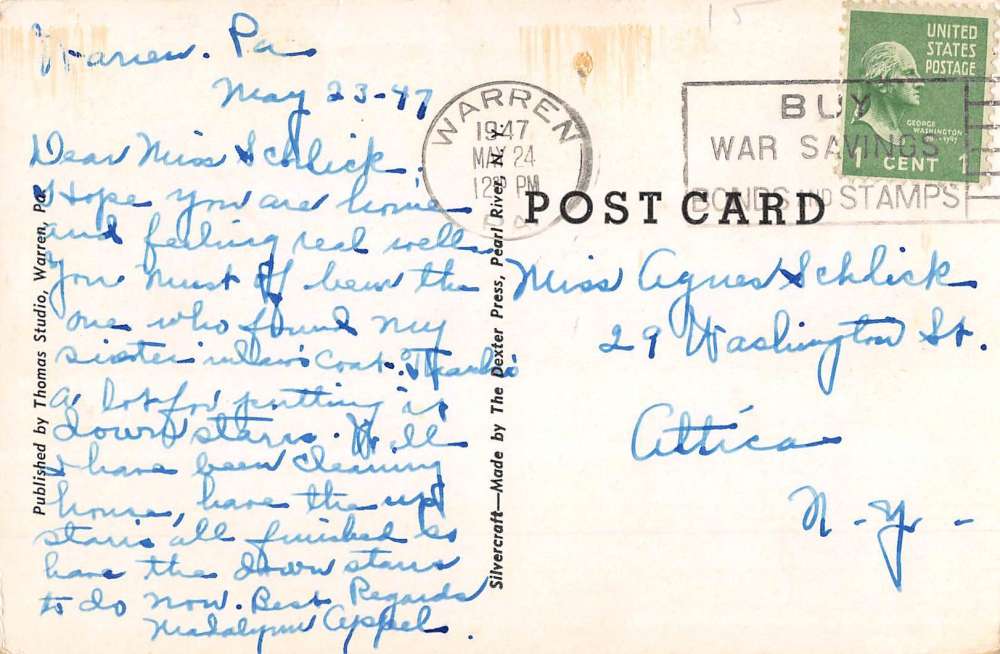 Warren. Pa
May 23-47
Dear Miss Schlick.
Hope you are home
and feeling real well.
You must of been the
one who found my
sister inlaws coat. Thanks
a lot for putting it
down stairs. Well
I have been cleaning
house, have the up
stairs all finished so
have the down stairs
to do now. Best Regards
Madalynn Appel.
Published by Thomas Studio, Warren, Pa.
Silvercraft—Made by The Dexter Press, Pearl River, N. Y.
WARREN
1947
MAY 24
12 PM
PA.
BUY
WAR SAVINGS
BONDS AND STAMPS
UNITED
STATES
POSTAGE
GEORGE
WASHINGTON
1 CENT 1
POST CARD
Miss Agnes Schlick
29 Washington St.
Attica
N-Y-
15